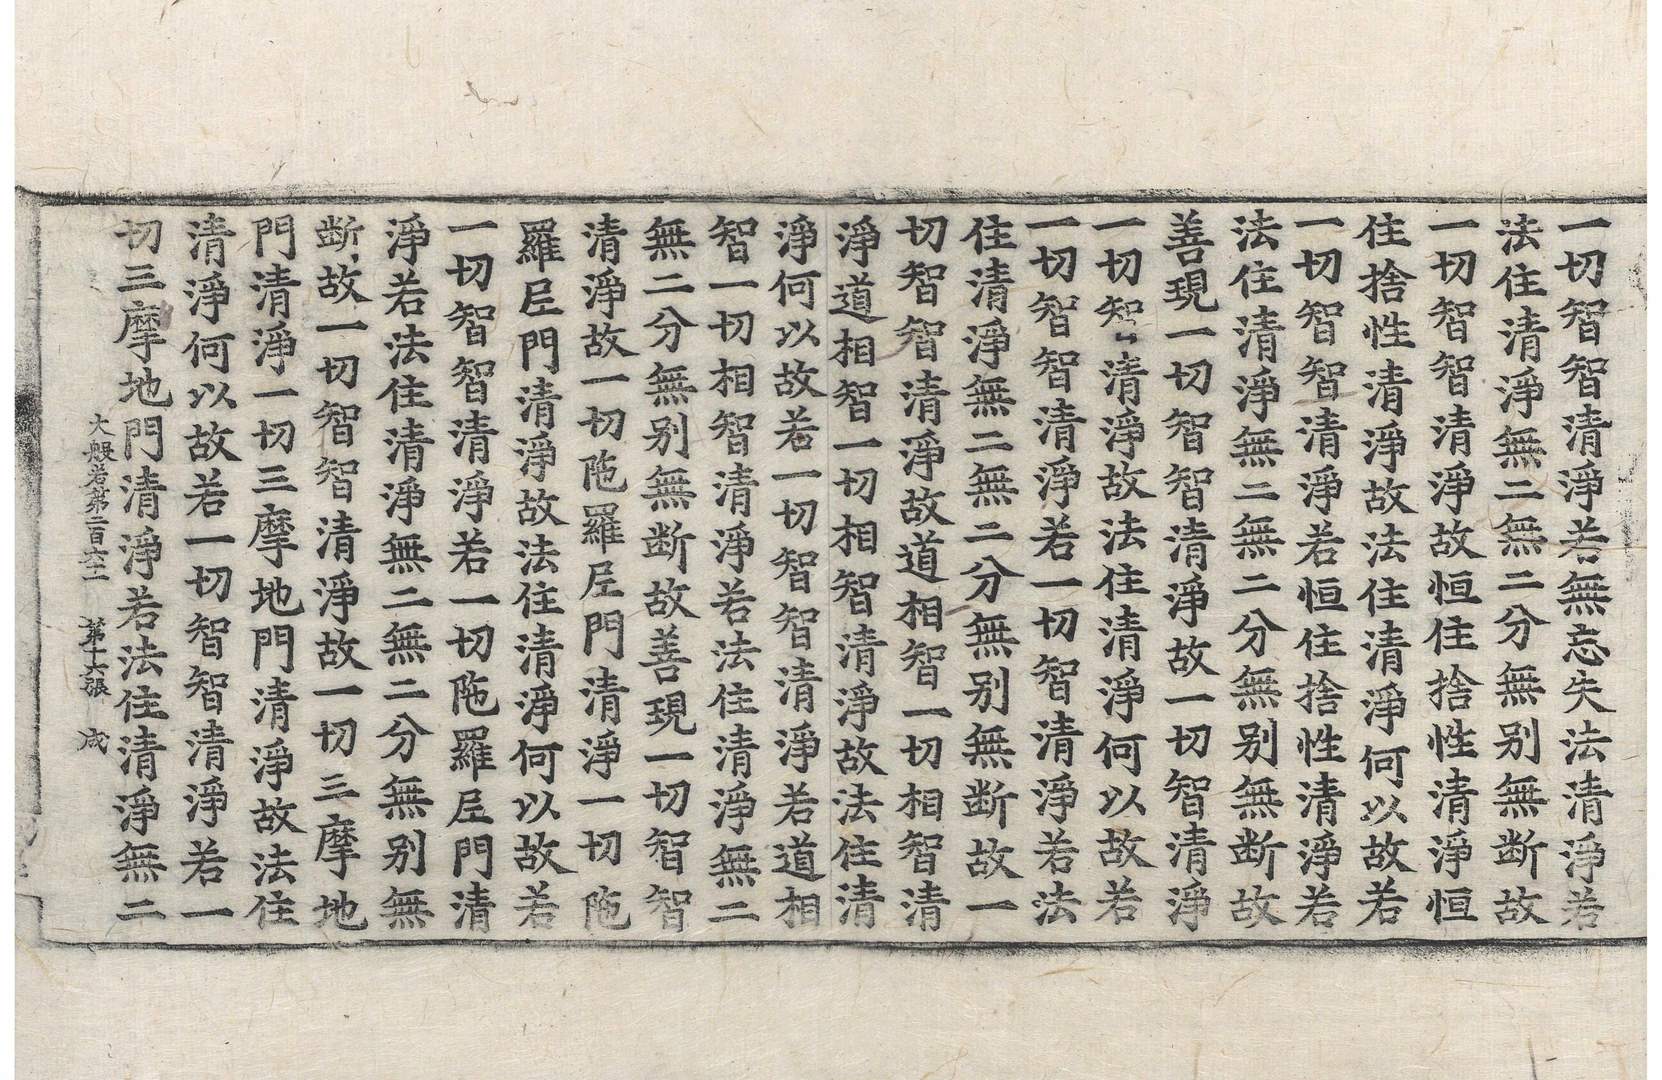 一切智智清淨若無忘失法清淨若
法住清淨無二無二分無别無断故
一切智智清淨故恒住捨性清淨恒
住捨性清淨故法住清淨何以故若
一切智智清淨若恒住捨性清淨若
法住清淨無二無二分無别無断故
善現一切智智清淨故一切智清淨
一切智清淨故法住清淨何以故若
一切智智清淨若一切智清淨若法
住清淨無二無二分無别無断故一
切智智清淨故道相智一切相智清
淨道相智一切相智清淨故法住清
淨何以故若一切智智清淨若道相
智一切相智清淨若法住清淨無二
無二分無别無断故善現一切智智
清淨故一切陁羅尼門清淨一切陁
羅尼門清淨故法住清淨何以故若
一切智智清淨若一切陁羅尼門清
淨若法住清淨無二無二分無别無
断故一切智智清淨故一切三摩地
門清淨一切三摩地門清淨故法住
清淨何以故若一切智智清淨若一
切三摩地門清淨若法住清淨無二
大般若第二百六十一 第十六張 成